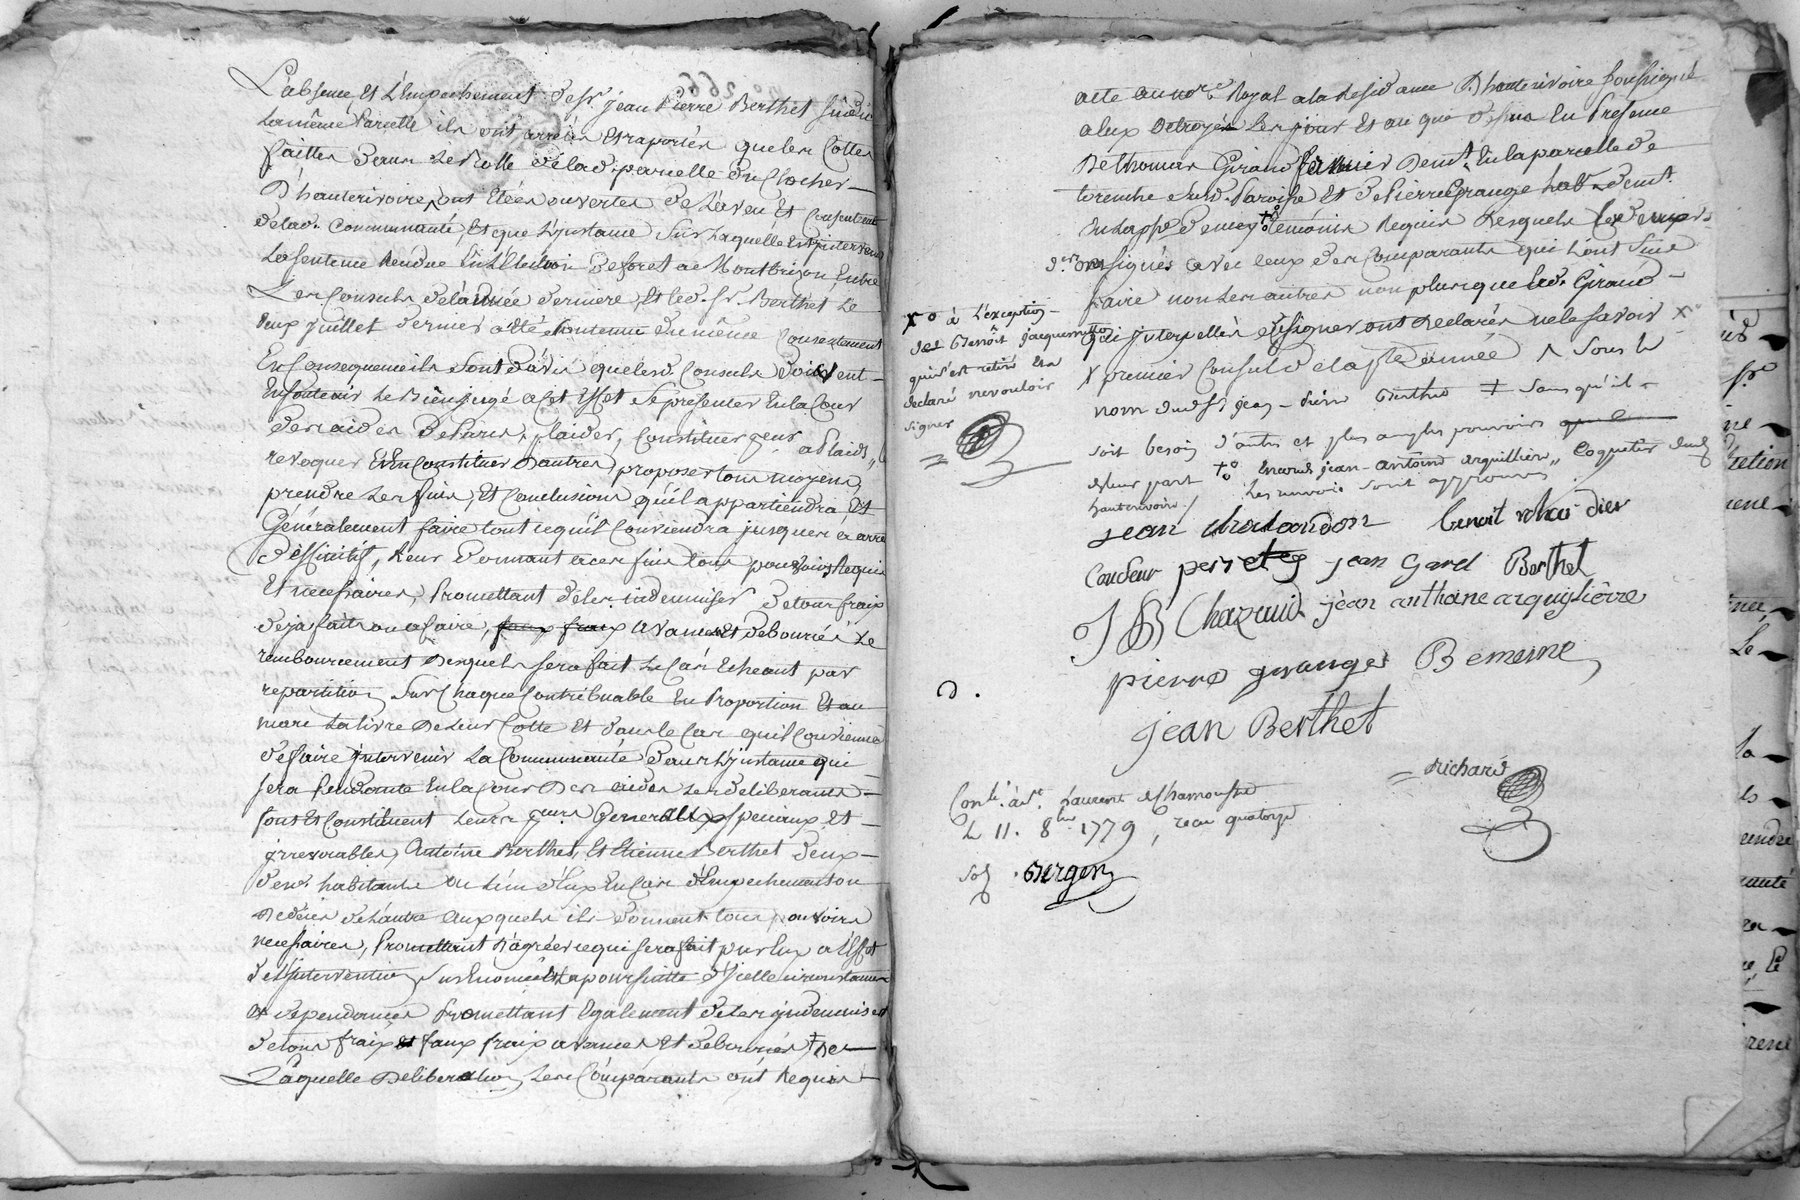 L'absence Et L'Empechement de Sr. jean Pierre Berthet sindic
la même Parcelle ils ont arretés Et raportés que les Cottes
faittes dans Le Rolle de lad. parcelle du Clocher
D'hauterivoire, ont Etées ouvertes de l'aveu Et Consentement
de lad. Communauté, Et que L'jnstance sur Laquelle Est jntervenue
La Sentence Rendue En L'Election de foret a Montbrison, Entre
Les Consuls de l'année derniere, Et led. Sr. Berthet Le
deux juillet dernier a été soutenue du même Consentement
En Consequence ils Sont d'avis que lesd. Consuls doivent
Ensoutenir Le Bien jugé a cet Effet se presenter En la Cour
des aides De Paris, plaider, Constituer peur. a Plaids,,
revoquer Et En Constituer D'autres, proposer tous moyens,
prendre Les fins, Et Conclusions qu'il appartiendra Et
Généralement faire tout ce qu'il Conviendra jusques a arret
Déffinitif, Leur Donnant a ces fins tous pouvoirs Requis
Et necessaires, Promettant de les indemniser De tous fraix
deja faits ou a faire, faux fraix avances Et Debourcés Le
remboursement Desquels sera fait Le Cas Echeant par
repartition Sur Chaque Contribuable En Proportion Et au
marc La livre De Leur Cotte Et dans le Cas qu'il Convienne
de faire jntervenir La Communauté Dans L'jnstance qui
sera pendante En la Cour Des aides Les deliberants
font Et Constituent Leurs peurs. Generaux speciaux Et
jrrevocables, Antoine Berthet, Et Etienne Berthet deux
d'eux habitants ou L'un d'Eux En Cas d'Empechement ou
De deces de L'autre auxquels ils donnent tous pouvoirs
necessaires, Promettant D'agréer ce qui sera fait par Eux a l'Effet
de L'jntervention sus Enoncée Et la poursuitte d'jcelle circonstances
Et dependances Promettant Egalement de les jndemniser
de tous fraix et faux fraix avances Et debourcés ‡ De
Laquelle Deliberation Les Comparants ont Requis
acte au nore. Royal a la Residance D'hauterivoire soussigné
a Eux Octroyé Les jour Et an que dessus En Presence
De thomas Giraud fermier Demt. En la parcelle de
torenche susd. Paroisse Et de Pierre Grange habt. demt.
temoins Requis Lesquels
soussignés avec ceux des Comparants qui L'ont Sceu
faire non Les autres non plus que led. Giraud
qui jnterpellés de signer ont Declarés ne le savoir X°
X° à L'exception
de Benoît jacquemetton
qui s'est retiré Et a
declaré ne vouloir
signer
premier Consul de la pte. année ^ Sous le
nom dud. Sr. jean - pierre Berthet ‡ Sans qu'il
soit besoin d'autre et plus amples pouvoirs
de leur part Encore jean - antoine arquilliere,, Coquetier dud.
hauterivoire / Les renvois sont approuvés
jean chataudon benoit dier
Coudeur jean Gard Berthet
J B Chazaud jean anthoine arquiglierre
pierre grange
jean Berthet
Richard
Conlé. à St. Laurent de Chamousset
Le 11. 8bre 1779, recu quatorze
sols